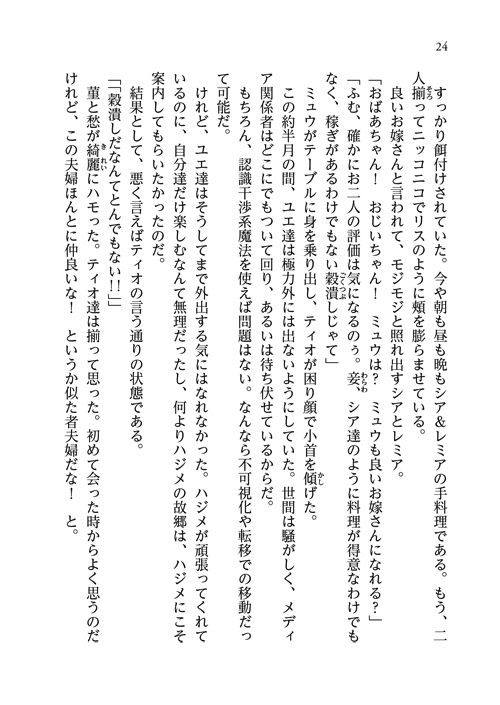 24
すっかり餌付けされていた。今や朝も昼も晩もシア＆レミアの手料理である。もう、二
人揃ってニッコニコでリスのように頬を膨らませている。
良いお嫁さんと言われて、モジモジと照れ出すシアとレミア。
「おばあちゃん！　おじいちゃん！　ミュウは？　ミュウも良いお嫁さんになれる？」
「ふむ、確かにお二人の評価は気になるのぅ。妾、シア達のように料理が得意なわけでも
なく、稼ぎがあるわけでもない穀潰しじゃて」
ミュウがテーブルに身を乗り出し、ティオが困り顔で小首を傾げた。
この約半月の間、ユエ達は極力外には出ないようにしていた。世間は騒がしく、メディ
ア関係者はどこにでもついて回り、あるいは待ち伏せているからだ。
もちろん、認識干渉系魔法を使えば問題はない。なんなら不可視化や転移での移動だっ
て可能だ。
けれど、ユエ達はそうしてまで外出する気にはなれなかった。ハジメが頑張ってくれて
いるのに、自分達だけ楽しむなんて無理だったし、何よりハジメの故郷は、ハジメにこそ
案内してもらいたかったのだ。
結果として、悪く言えばティオの言う通りの状態である。
「「穀潰しだなんてとんでもない!!」」
菫と愁が綺麗にハモった。ティオ達は揃って思った。初めて会った時からよく思うのだ
けれど、この夫婦ほんとに仲良いな！　というか似た者夫婦だな！　と。